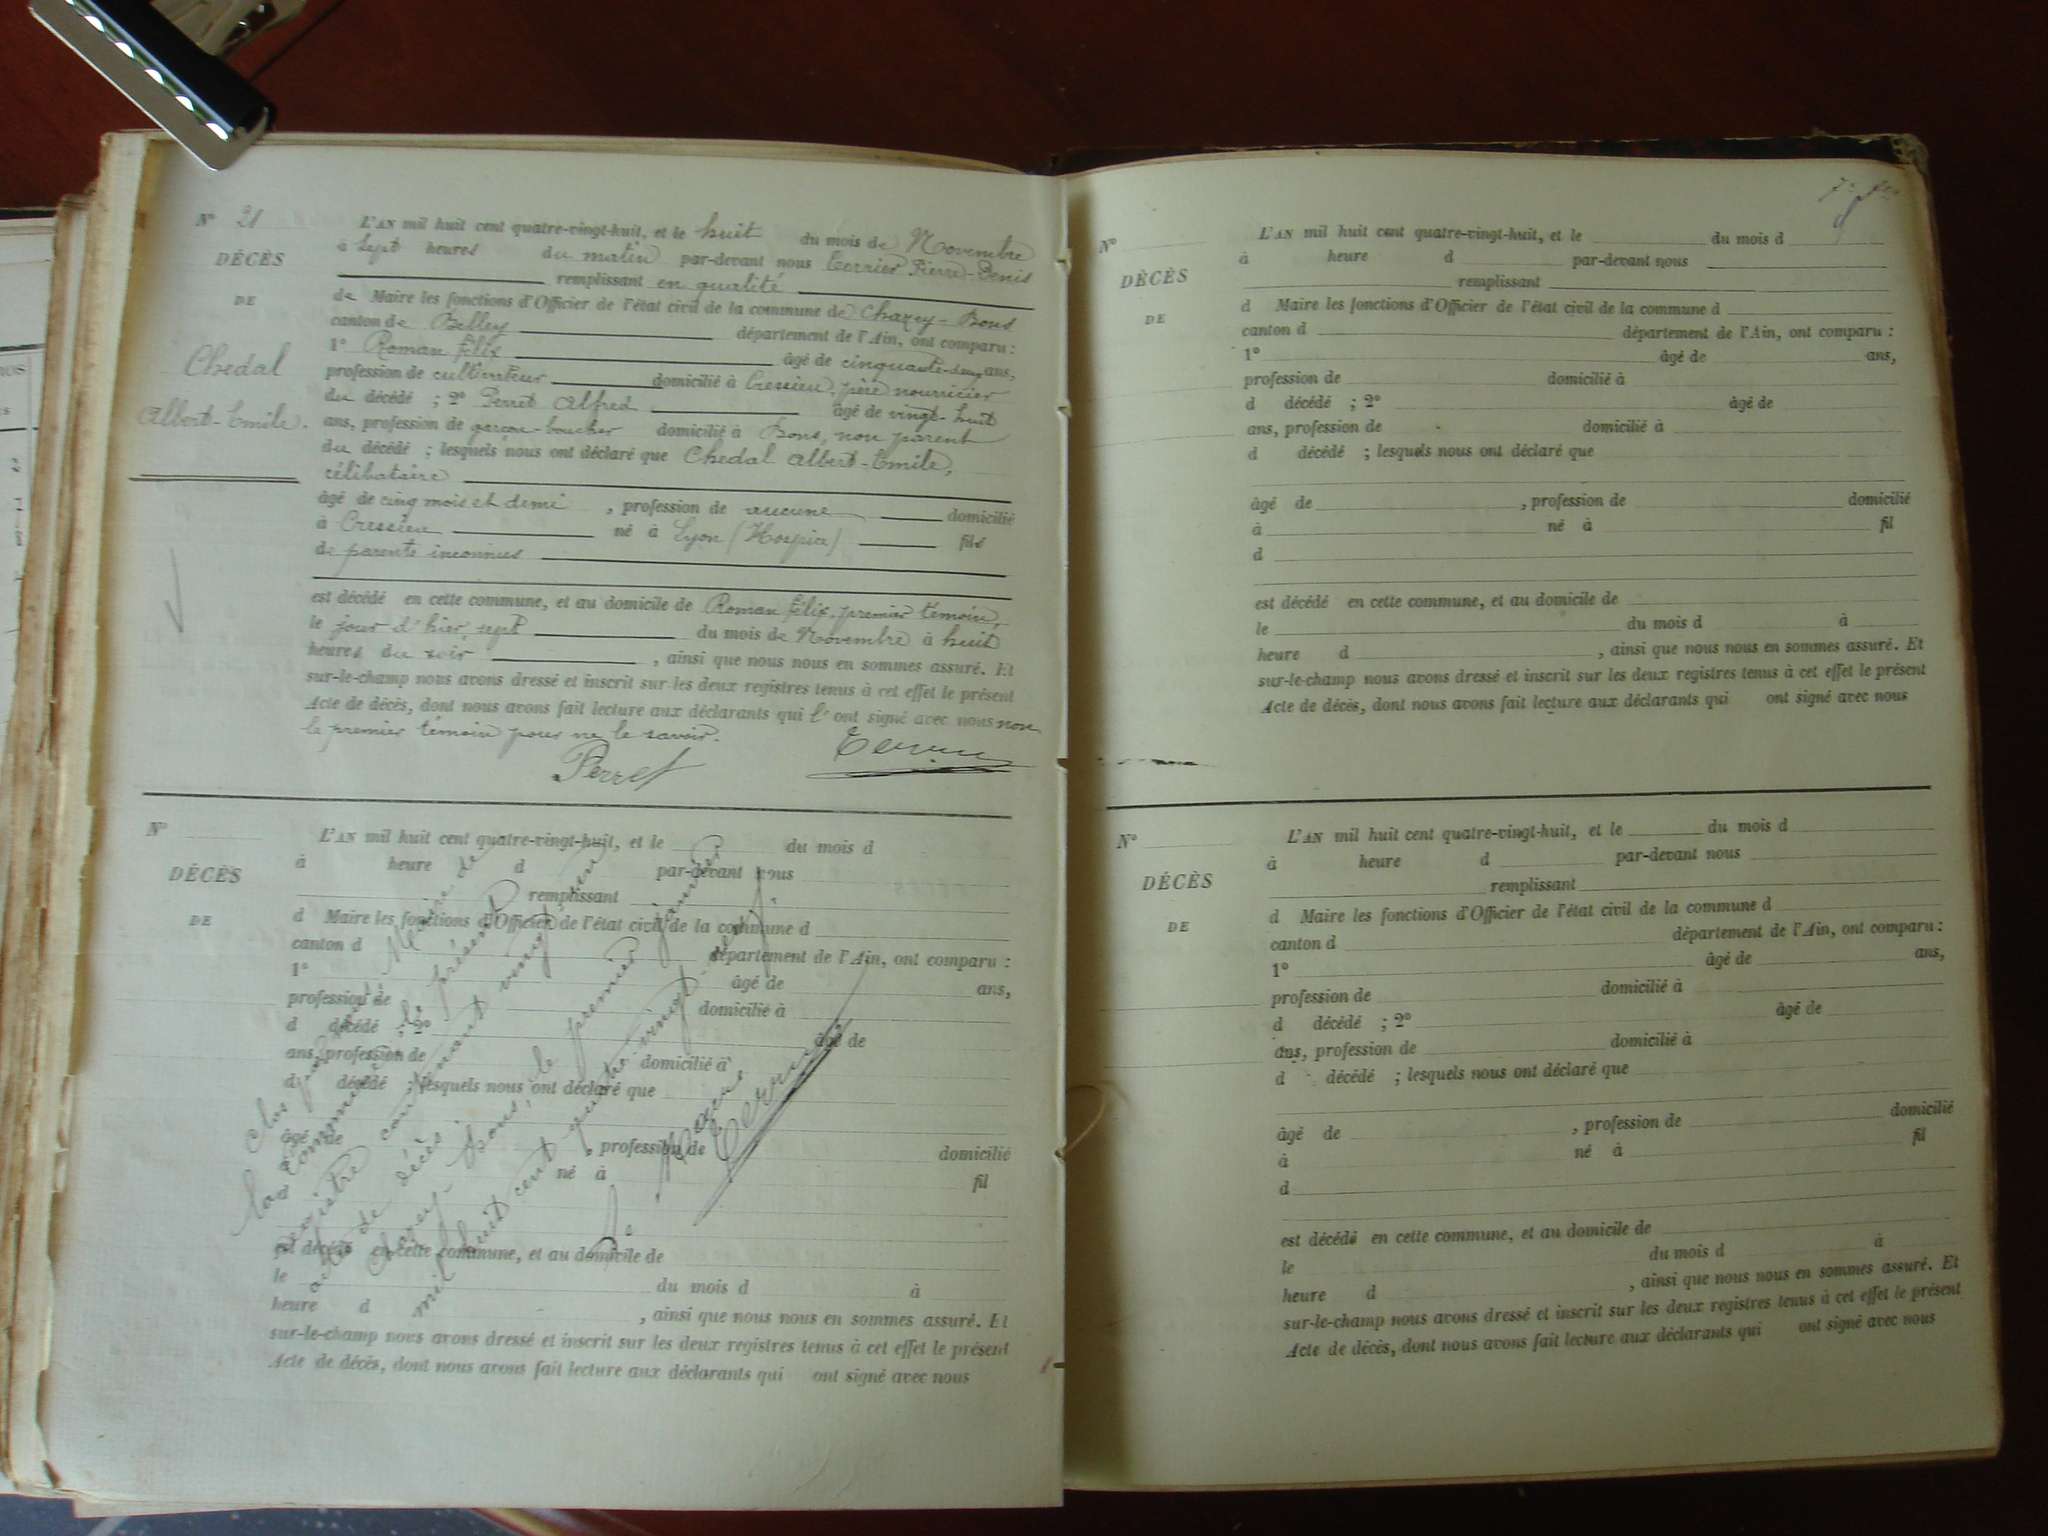 N° 21
DÉCÈS
DE
Chedal
Albert-Emile.
L'AN mil huit cent quatre-vingt-huit, et le huit du mois de Novembre
à sept heures du matin par-devant nous Terrier Pierre-Denis
remplissant en qualité
de Maire les fonctions d'Officier de l'état civil de la commune de Chazey-Bons
canton de Belley département de l'Ain, ont comparu :
1° Roman Félix âgé de cinquante-deux ans,
profession de cultivateur domicilié à Cressieu, père nourricier
du décédé ; 2° Perret Alfred âgé de vingt-huit
ans, profession de garçon-boucher domicilié à Bons, non parent
du décédé ; lesquels nous ont déclaré que Chedal Albert-Emile,
célibataire
âgé de cinq mois et demi , profession de aucune domicilié
à Cressieu né à Lyon (Hospice) fils
de parents inconnus
est décédé en cette commune, et au domicile de Roman Félix, premier témoin,
le jour d'hier, sept du mois de Novembre à huit
heures du soir , ainsi que nous nous en sommes assuré. Et
sur-le-champ nous avons dressé et inscrit sur les deux registres tenus à cet effet le présent
Acte de décès, dont nous avons fait lecture aux déclarants qui l'ont signé avec nous non
le premier témoin pour ne le savoir.
Perret Terrier
N°
DÉCÈS
DE
L'AN mil huit cent quatre-vingt-huit, et le du mois d
à heure d par-devant nous
remplissant
d Maire les fonctions d'Officier de l'état civil de la commune d
canton d département de l'Ain, ont comparu :
1° âgé de ans,
profession de domicilié à
d décédé ; 2° âgé de
ans, profession de domicilié à
d décédé ; lesquels nous ont déclaré que
âgé de , profession de domicilié
à né à fil
d
est décédé en cette commune, et au domicile de
le du mois d à
heure d , ainsi que nous nous en sommes assuré. Et
sur-le-champ nous avons dressé et inscrit sur les deux registres tenus à cet effet le présent
Acte de décès, dont nous avons fait lecture aux déclarants qui ont signé avec nous
Clos par Maire de
la commune le présent
registre contenant vingt un
actes de décès
Chazey-Bons, le premier janvier
mil huit cent quatre vingt neuf
Le Maire
Terrier
N°
DÉCÈS
DE
L'AN mil huit cent quatre-vingt-huit, et le du mois d
à heure d par-devant nous
remplissant
d Maire les fonctions d'Officier de l'état civil de la commune d
canton d département de l'Ain, ont comparu :
1° âgé de ans,
profession de domicilié à
d décédé ; 2° âgé de
ans, profession de domicilié à
d décédé ; lesquels nous ont déclaré que
âgé de , profession de domicilié
à né à fil
d
est décédé en cette commune, et au domicile de
le du mois d à
heure d , ainsi que nous nous en sommes assuré. Et
sur-le-champ nous avons dressé et inscrit sur les deux registres tenus à cet effet le présent
Acte de décès, dont nous avons fait lecture aux déclarants qui ont signé avec nous
N°
DÉCÈS
DE
L'AN mil huit cent quatre-vingt-huit, et le du mois d
à heure d par-devant nous
remplissant
d Maire les fonctions d'Officier de l'état civil de la commune d
canton d département de l'Ain, ont comparu :
1° âgé de ans,
profession de domicilié à
d décédé ; 2° âgé de
ans, profession de domicilié à
d décédé ; lesquels nous ont déclaré que
âgé de , profession de domicilié
à né à fil
d
est décédé en cette commune, et au domicile de
le du mois d à
heure d , ainsi que nous nous en sommes assuré. Et
sur-le-champ nous avons dressé et inscrit sur les deux registres tenus à cet effet le présent
Acte de décès, dont nous avons fait lecture aux déclarants qui ont signé avec nous